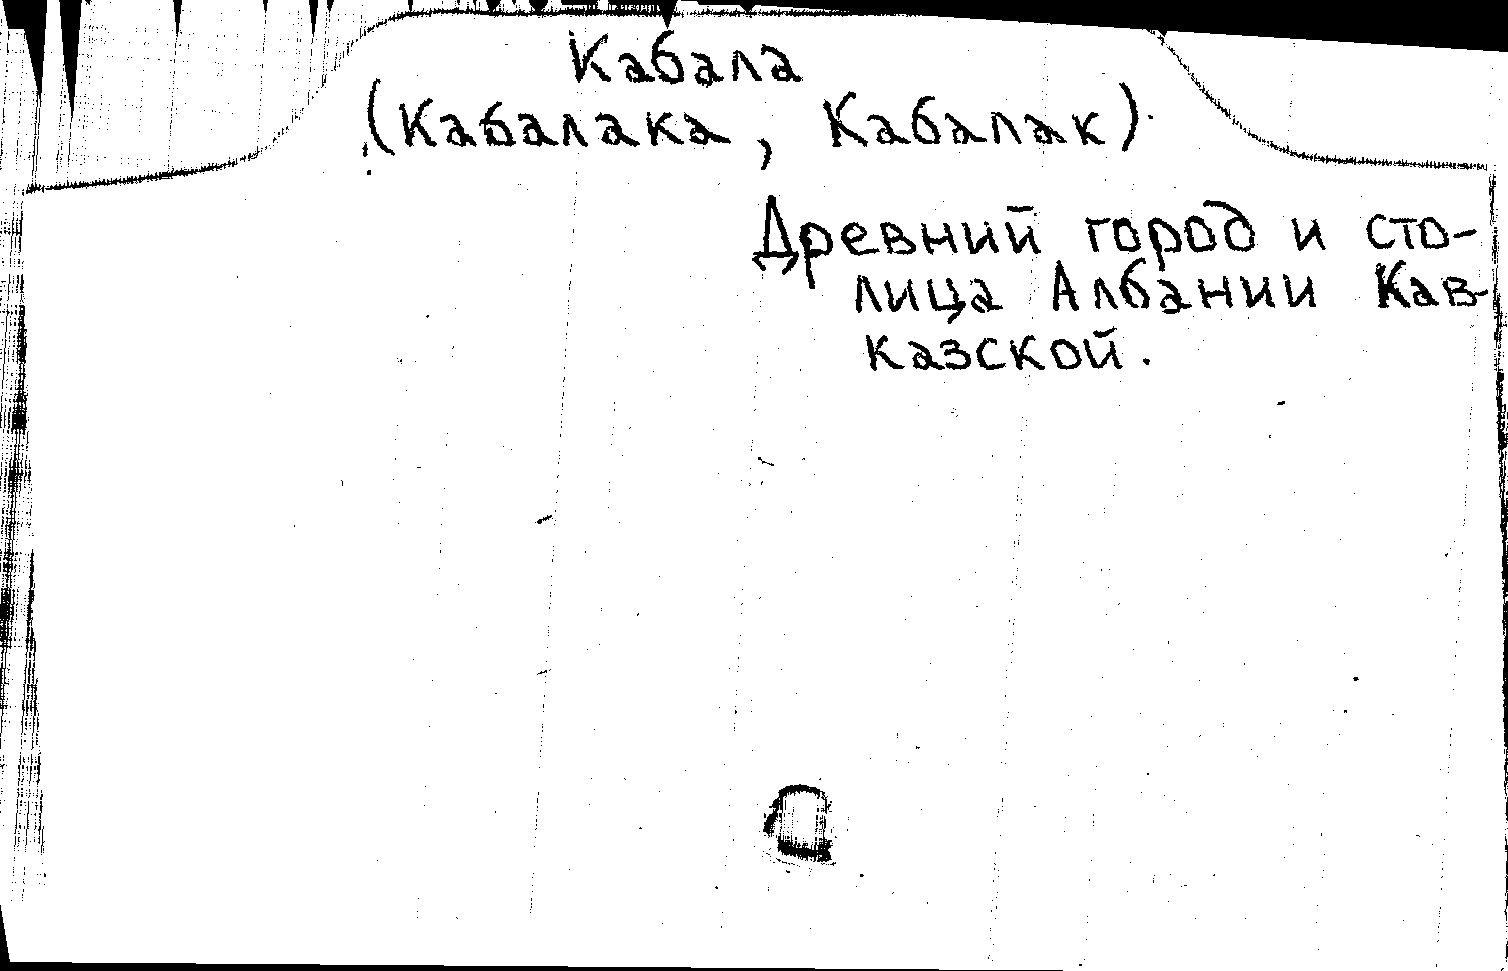 Кабала
(Кабалака, Кабалак)
Древний город и сто-
лица Албании Кав-
казской.